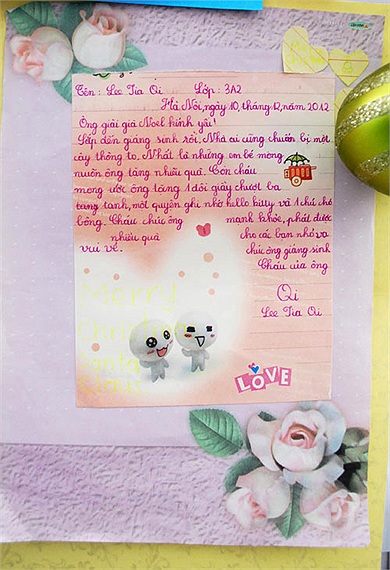 Tên : Lee Tia Qi Lớp : 3A2
Hà Nội, ngày 10, tháng 12, năm 2012
Ông giải giá Noel kính yêu!
Sắp đến giáng sinh rồi. Nhà ai cũng chuẩn bị một
cây thông to. Nhất là những em bé mong
muốn ông tặng nhiều quà. Còn cháu
mong ước ông tặng 1 đôi giầy chượt ba
tang tanh, một quyển ghi nhớ hello kitty và 1 chú chó
bông. Cháu chúc ông mạnh khỏe, phát được
nhiều quà cho các bạn nhỏ và
vui vẻ. chúc ông giáng sinh
Cháu của ông
Qi
Lee Tia Qi
Merry
Christmas
Santa
Claus
LOVE